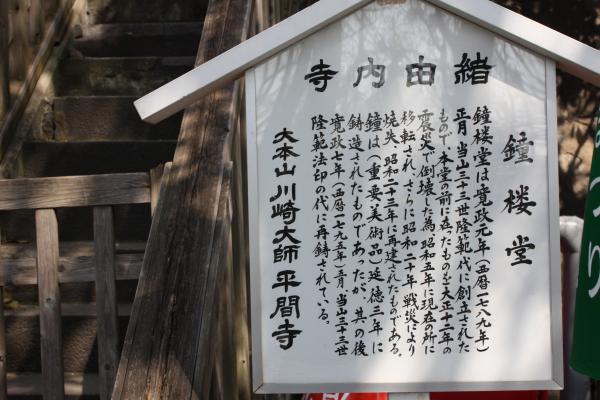 寺内由緒
鐘楼堂
鐘楼堂は寛政元年(西暦一七八九年)
正月、当山三十三世隆範代に創立された
もので、本堂の前に在ったものを大正十二年の
震災で倒壊した為、昭和五年に現在の所に
移転され、さらに昭和二十年戦災により
焼失、昭和二十三年に再建されたものである。
鐘は(重要美術品)延徳三年に
鋳造されたものであったが、其の後
寛政七年(西暦一七九五年)五月、当山三十三世
隆範法印の代に再鋳されている。
大本山川崎大師平間寺
つり